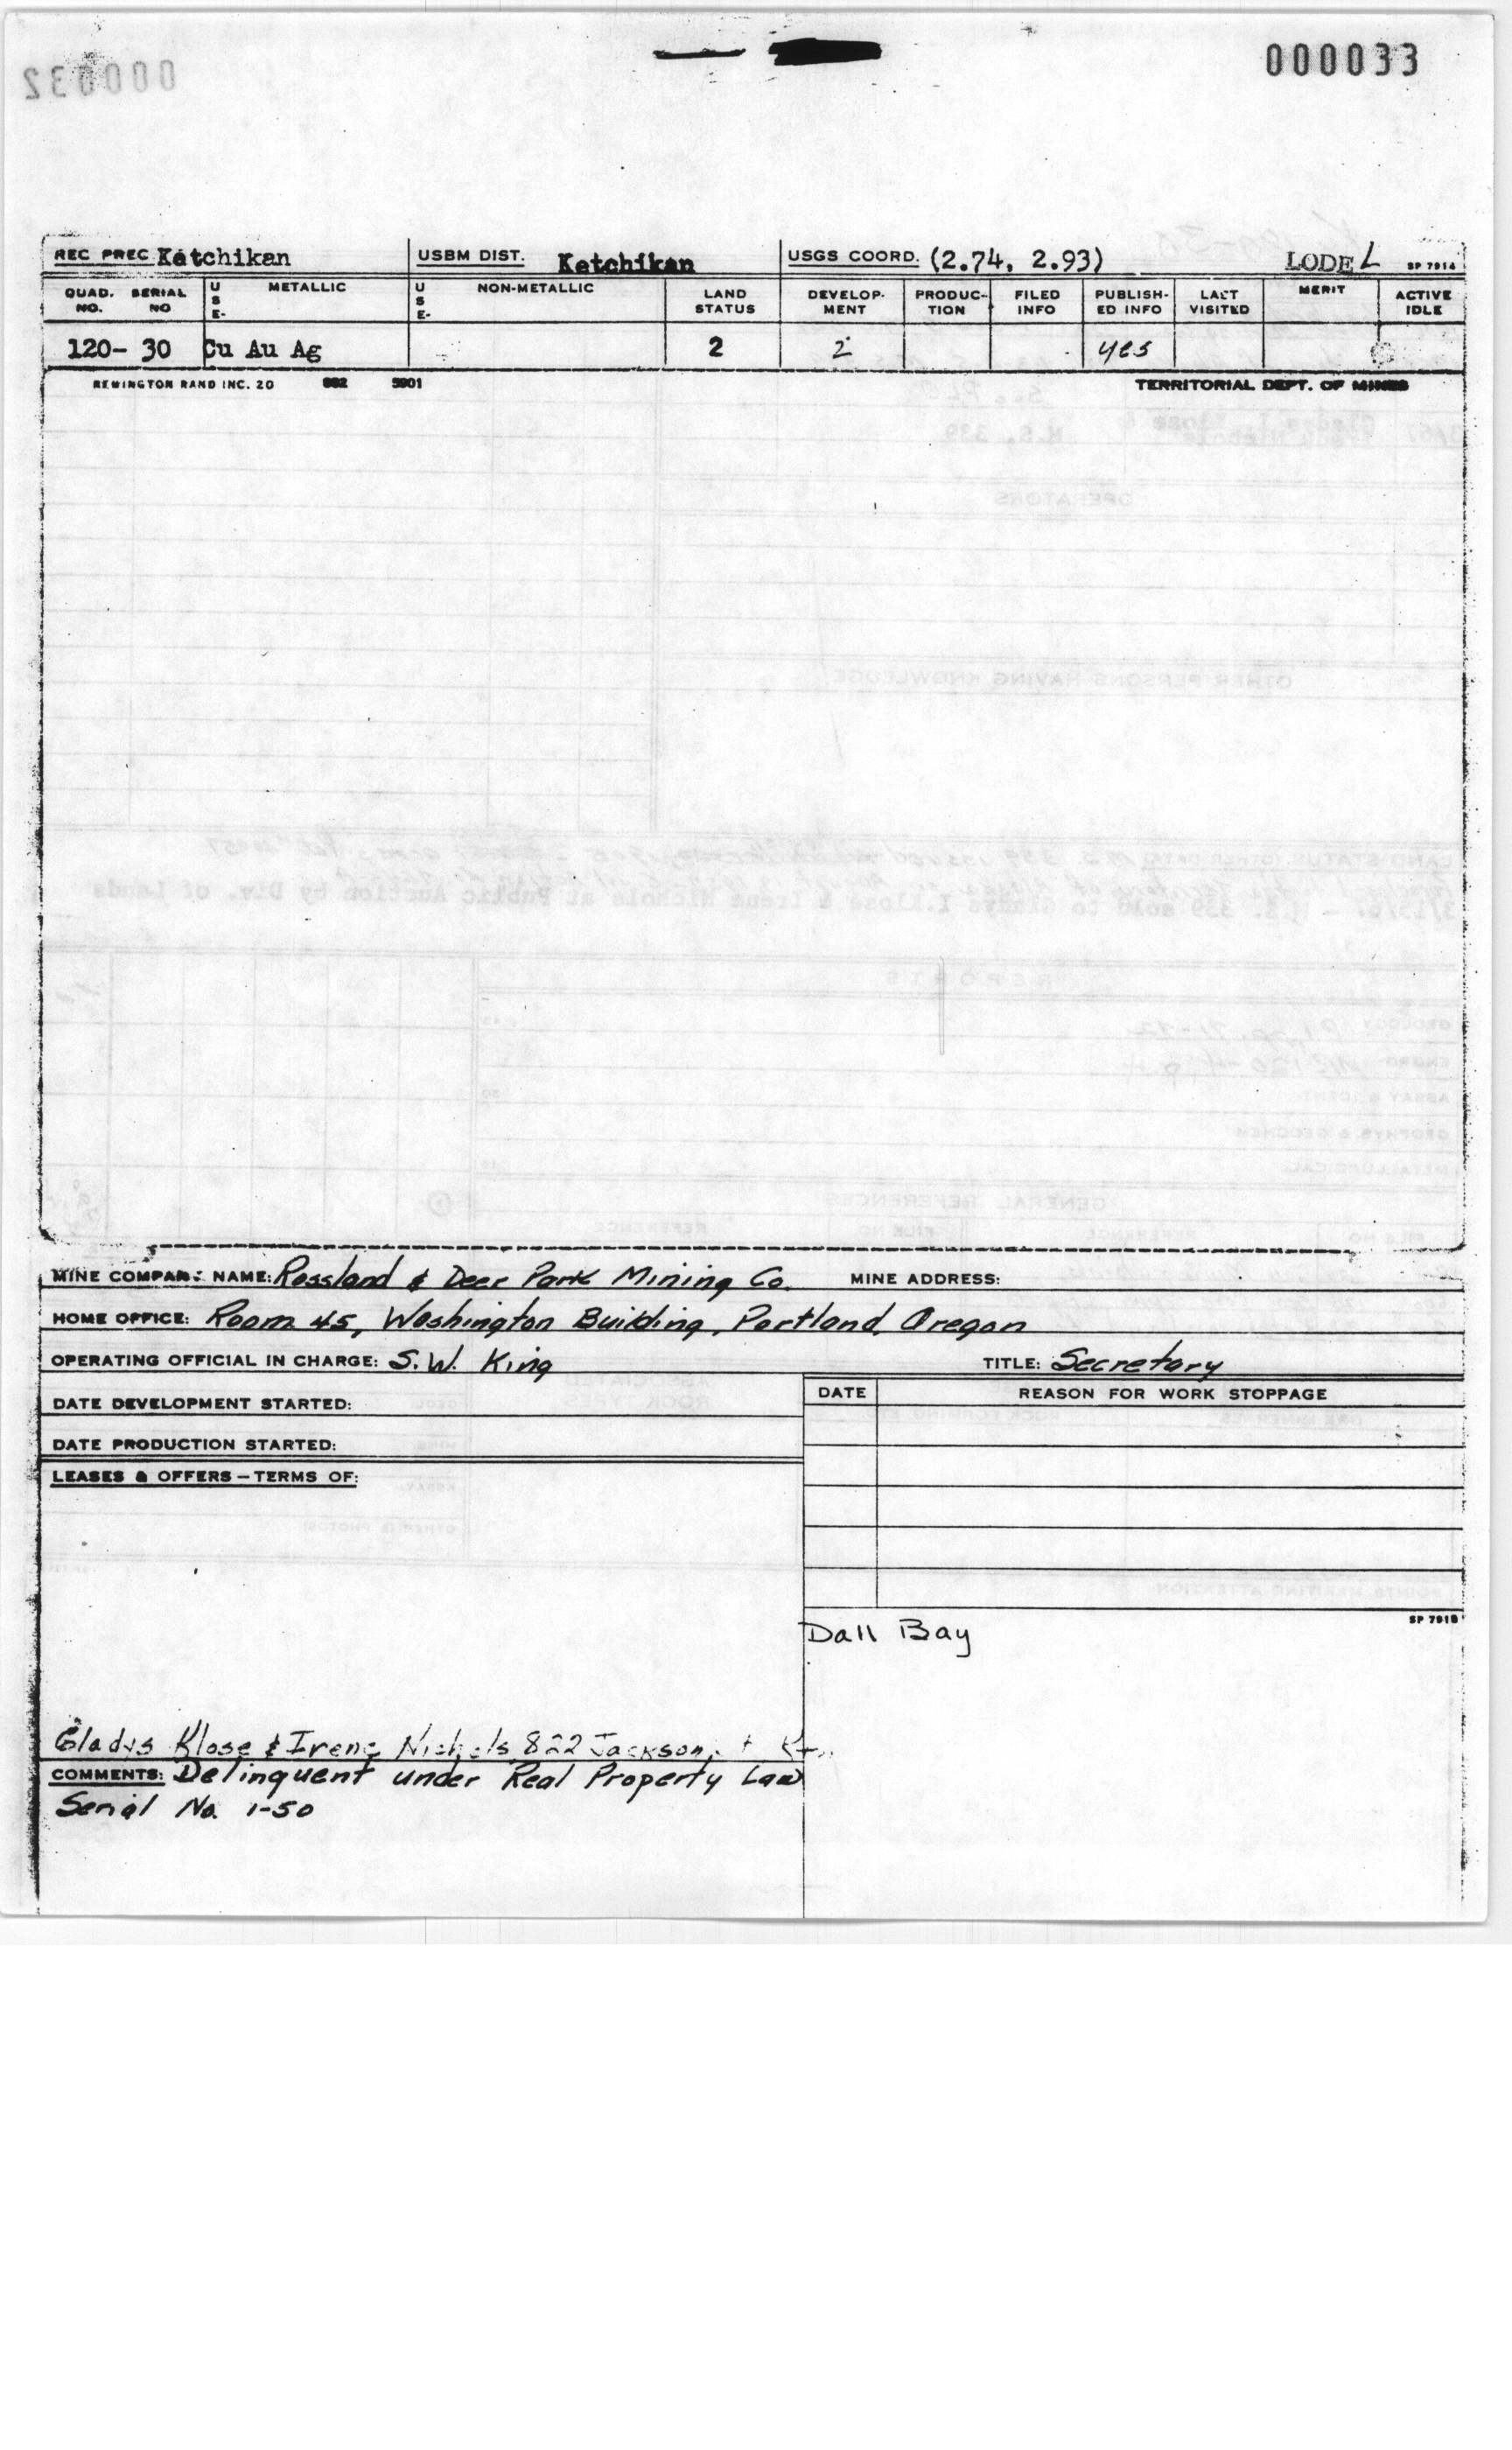 000032
000033
REC PREC Ketchikan USBM DIST. Ketchikan USGS COORD. (2.74, 2.93) LODE L SP 7914
QUAD. NO. SERIAL NO USE- METALLIC USE- NON-METALLIC LAND STATUS DEVELOP-MENT PRODUC-TION FILED INFO PUBLISH-ED INFO LAST VISITED MERIT ACTIVE IDLE
120- 30 Cu Au Ag 2 2 yes
REMINGTON RAND INC. 20 882 5901 TERRITORIAL DEPT. OF MINES
OPERATORS
OTHER PERSONS HAVING KNOWLEDGE
LAND STATUS (OTHER DATA)
M.S. 339 sold to Gladys I. Klose & Irene Nichols at Public Auction by Div. of Lands
REPORTS
GENERAL REFERENCES
MINE COMPANY NAME: Rossland & Deer Park Mining Co. MINE ADDRESS:
HOME OFFICE: Room 45, Washington Building, Portland, Oregon
OPERATING OFFICIAL IN CHARGE: S.W. King TITLE: Secretary
DATE DEVELOPMENT STARTED: DATE REASON FOR WORK STOPPAGE
DATE PRODUCTION STARTED:
LEASES & OFFERS — TERMS OF:
SP 7918
Dall Bay
Gladys Klose & Irene Nichols 822 Jackson,
COMMENTS: Delinquent under Real Property Law
Serial No. 1-50